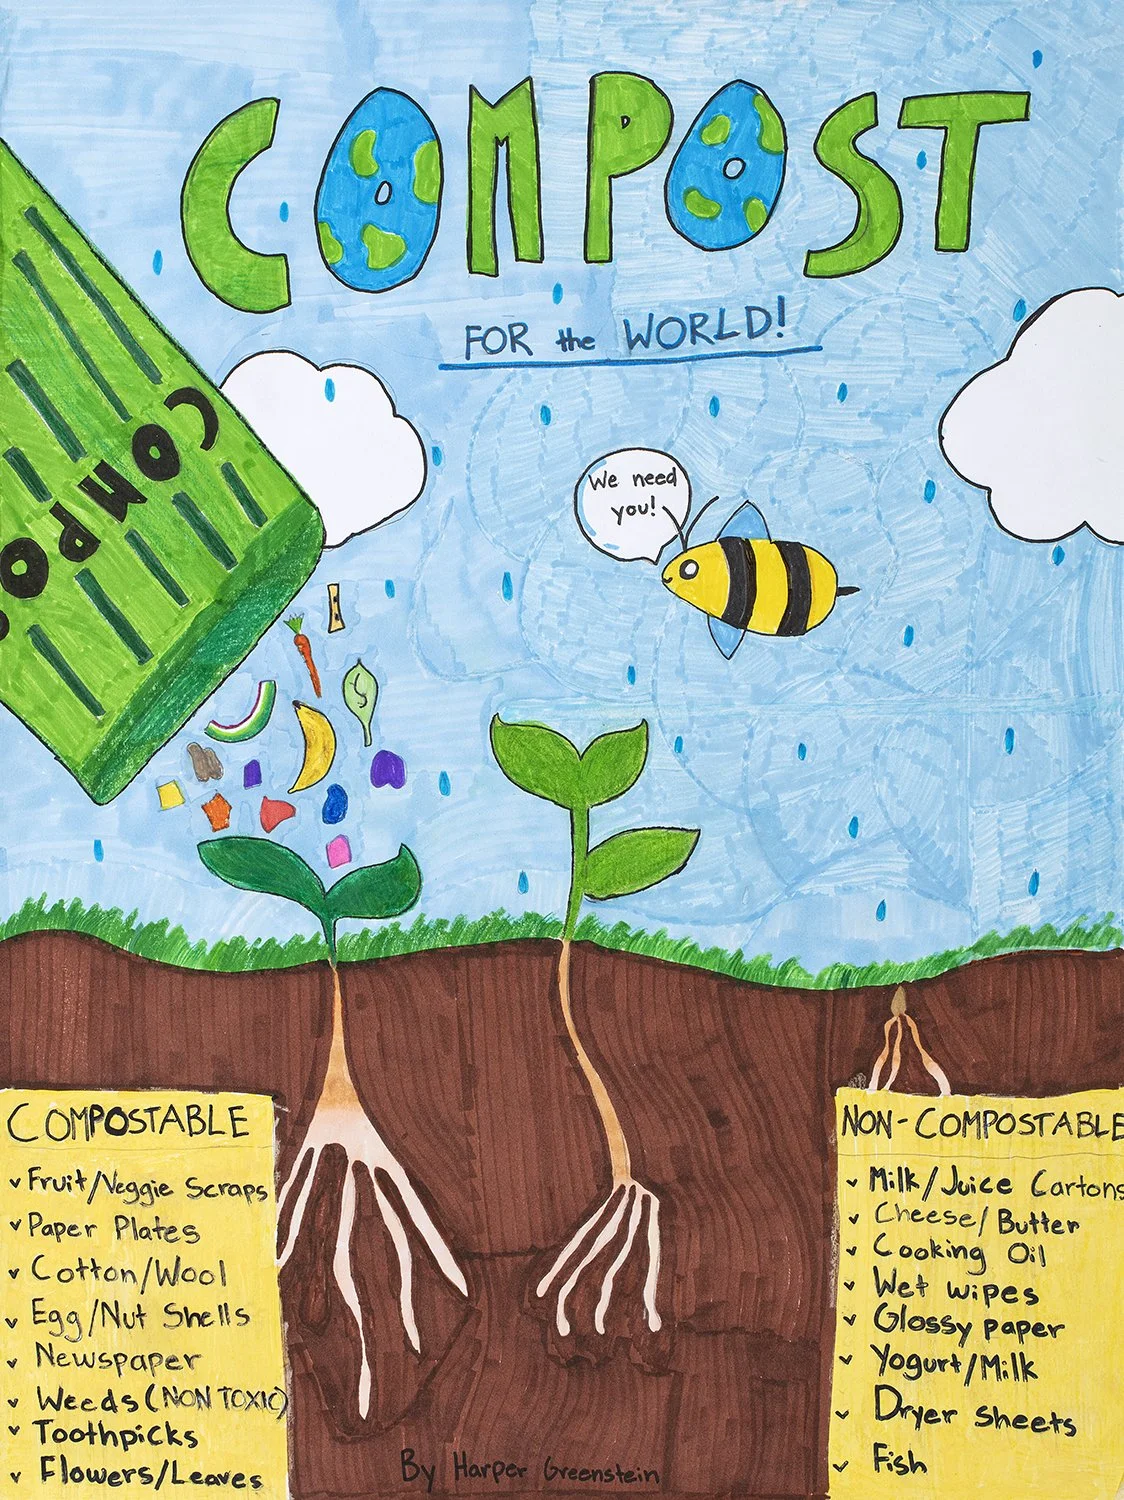 COMPOST
FOR the WORLD!
COMPO
We need
you!
COMPOSTABLE
Fruit/Veggie Scraps
Paper Plates
Cotton/Wool
Egg/Nut Shells
Newspaper
Weeds (NON TOXIC)
Toothpicks
Flowers/Leaves
NON-COMPOSTABLE
Milk/Juice Cartons
Cheese/Butter
Cooking Oil
Wet wipes
Glossy paper
Yogurt/Milk
Dryer Sheets
Fish
By Harper Greenstein